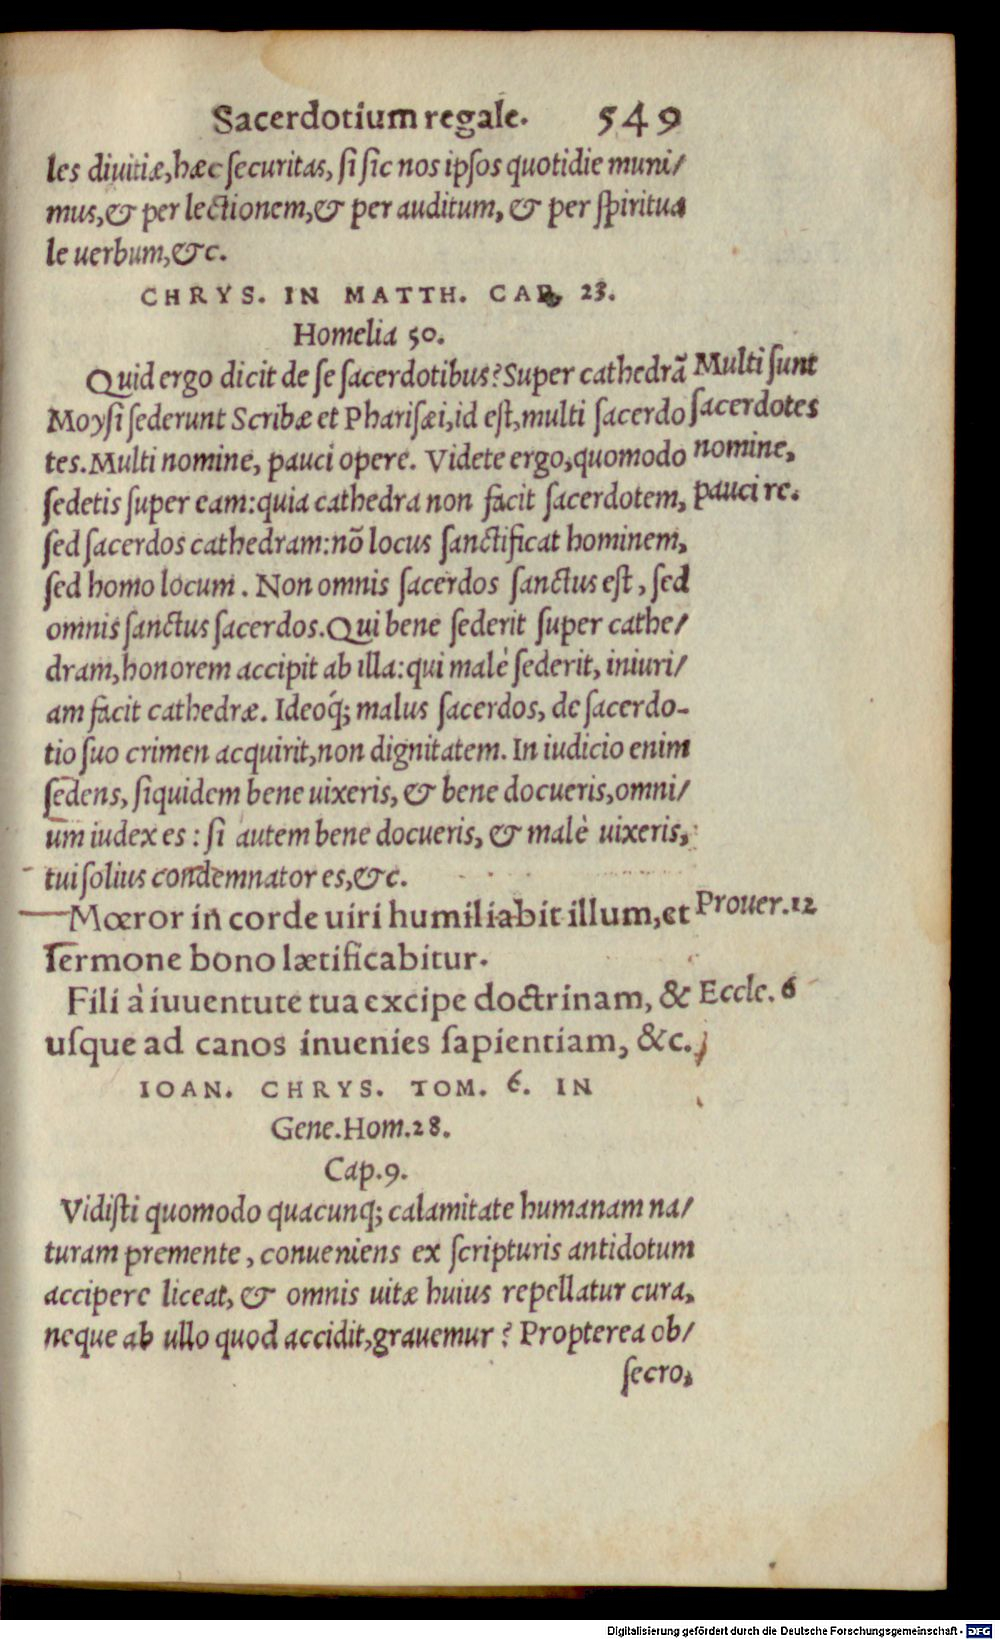 Sacerdotium regale. 549
les diuitiæ, hæc ſecuritas, ſi ſic nos ipſos quotidie muni/
mus, & per lectionem, & per auditum, & per ſpiritua
le uerbum, &c.
CHRYS. IN MATTH. CAP. 23.
Homelia 50.
Quid ergo dicit de ſe ſacerdotibus? Super cathedrã
Moyſi ſederunt Scribæ et Phariſæi, id eſt, multi ſacerdo
tes. Multi nomine, pauci opere. Videte ergo, quomodo
ſedetis ſuper eam: quia cathedra non facit ſacerdotem,
ſed ſacerdos cathedram: nõ locus ſanctificat hominem,
ſed homo locum. Non omnis ſacerdos ſanctus eſt, ſed
omnis ſanctus ſacerdos. Qui bene ſederit ſuper cathe/
dram, honorem accipit ab illa: qui malè ſederit, iniuri/
am facit cathedræ. Ideoq́; malus ſacerdos, de ſacerdo-
tio ſuo crimen acquirit, non dignitatem. In iudicio enim
ſedens, ſiquidem bene uixeris, & bene docueris, omni/
um iudex es: ſi autem bene docueris, & malè uixeris,
tui ſolius condemnator es, &c.
Multi ſunt
ſacerdotes
nomine,
pauci re.
Mœror in corde uiri humiliabit illum, et
ſermone bono lætificabitur.
Prouer. 12
Fili à iuuentute tua excipe doctrinam, &
uſque ad canos inuenies ſapientiam, &c.
Eccle. 6
IOAN. CHRYS. TOM. 6. IN
Gene. Hom. 28.
Cap. 9.
Vidiſti quomodo quacunq; calamitate humanam na/
turam premente, conueniens ex ſcripturis antidotum
accipere liceat, & omnis uitæ huius repellatur cura,
neque ab ullo quod accidit, grauemur? Propterea ob/
ſecro,
Digitalisierung gefördert durch die Deutsche Forschungsgemeinschaft - DFG